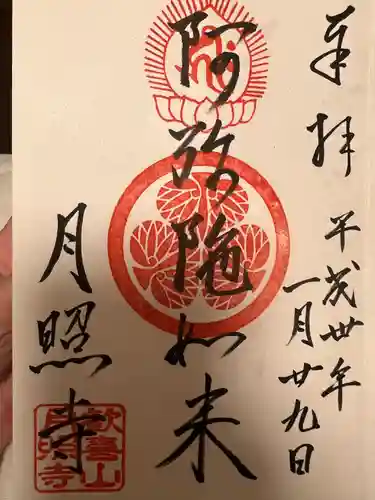 奉拝
平成卅年
一月廿九日
阿弥陀如来
月照寺
歓喜山
月照寺